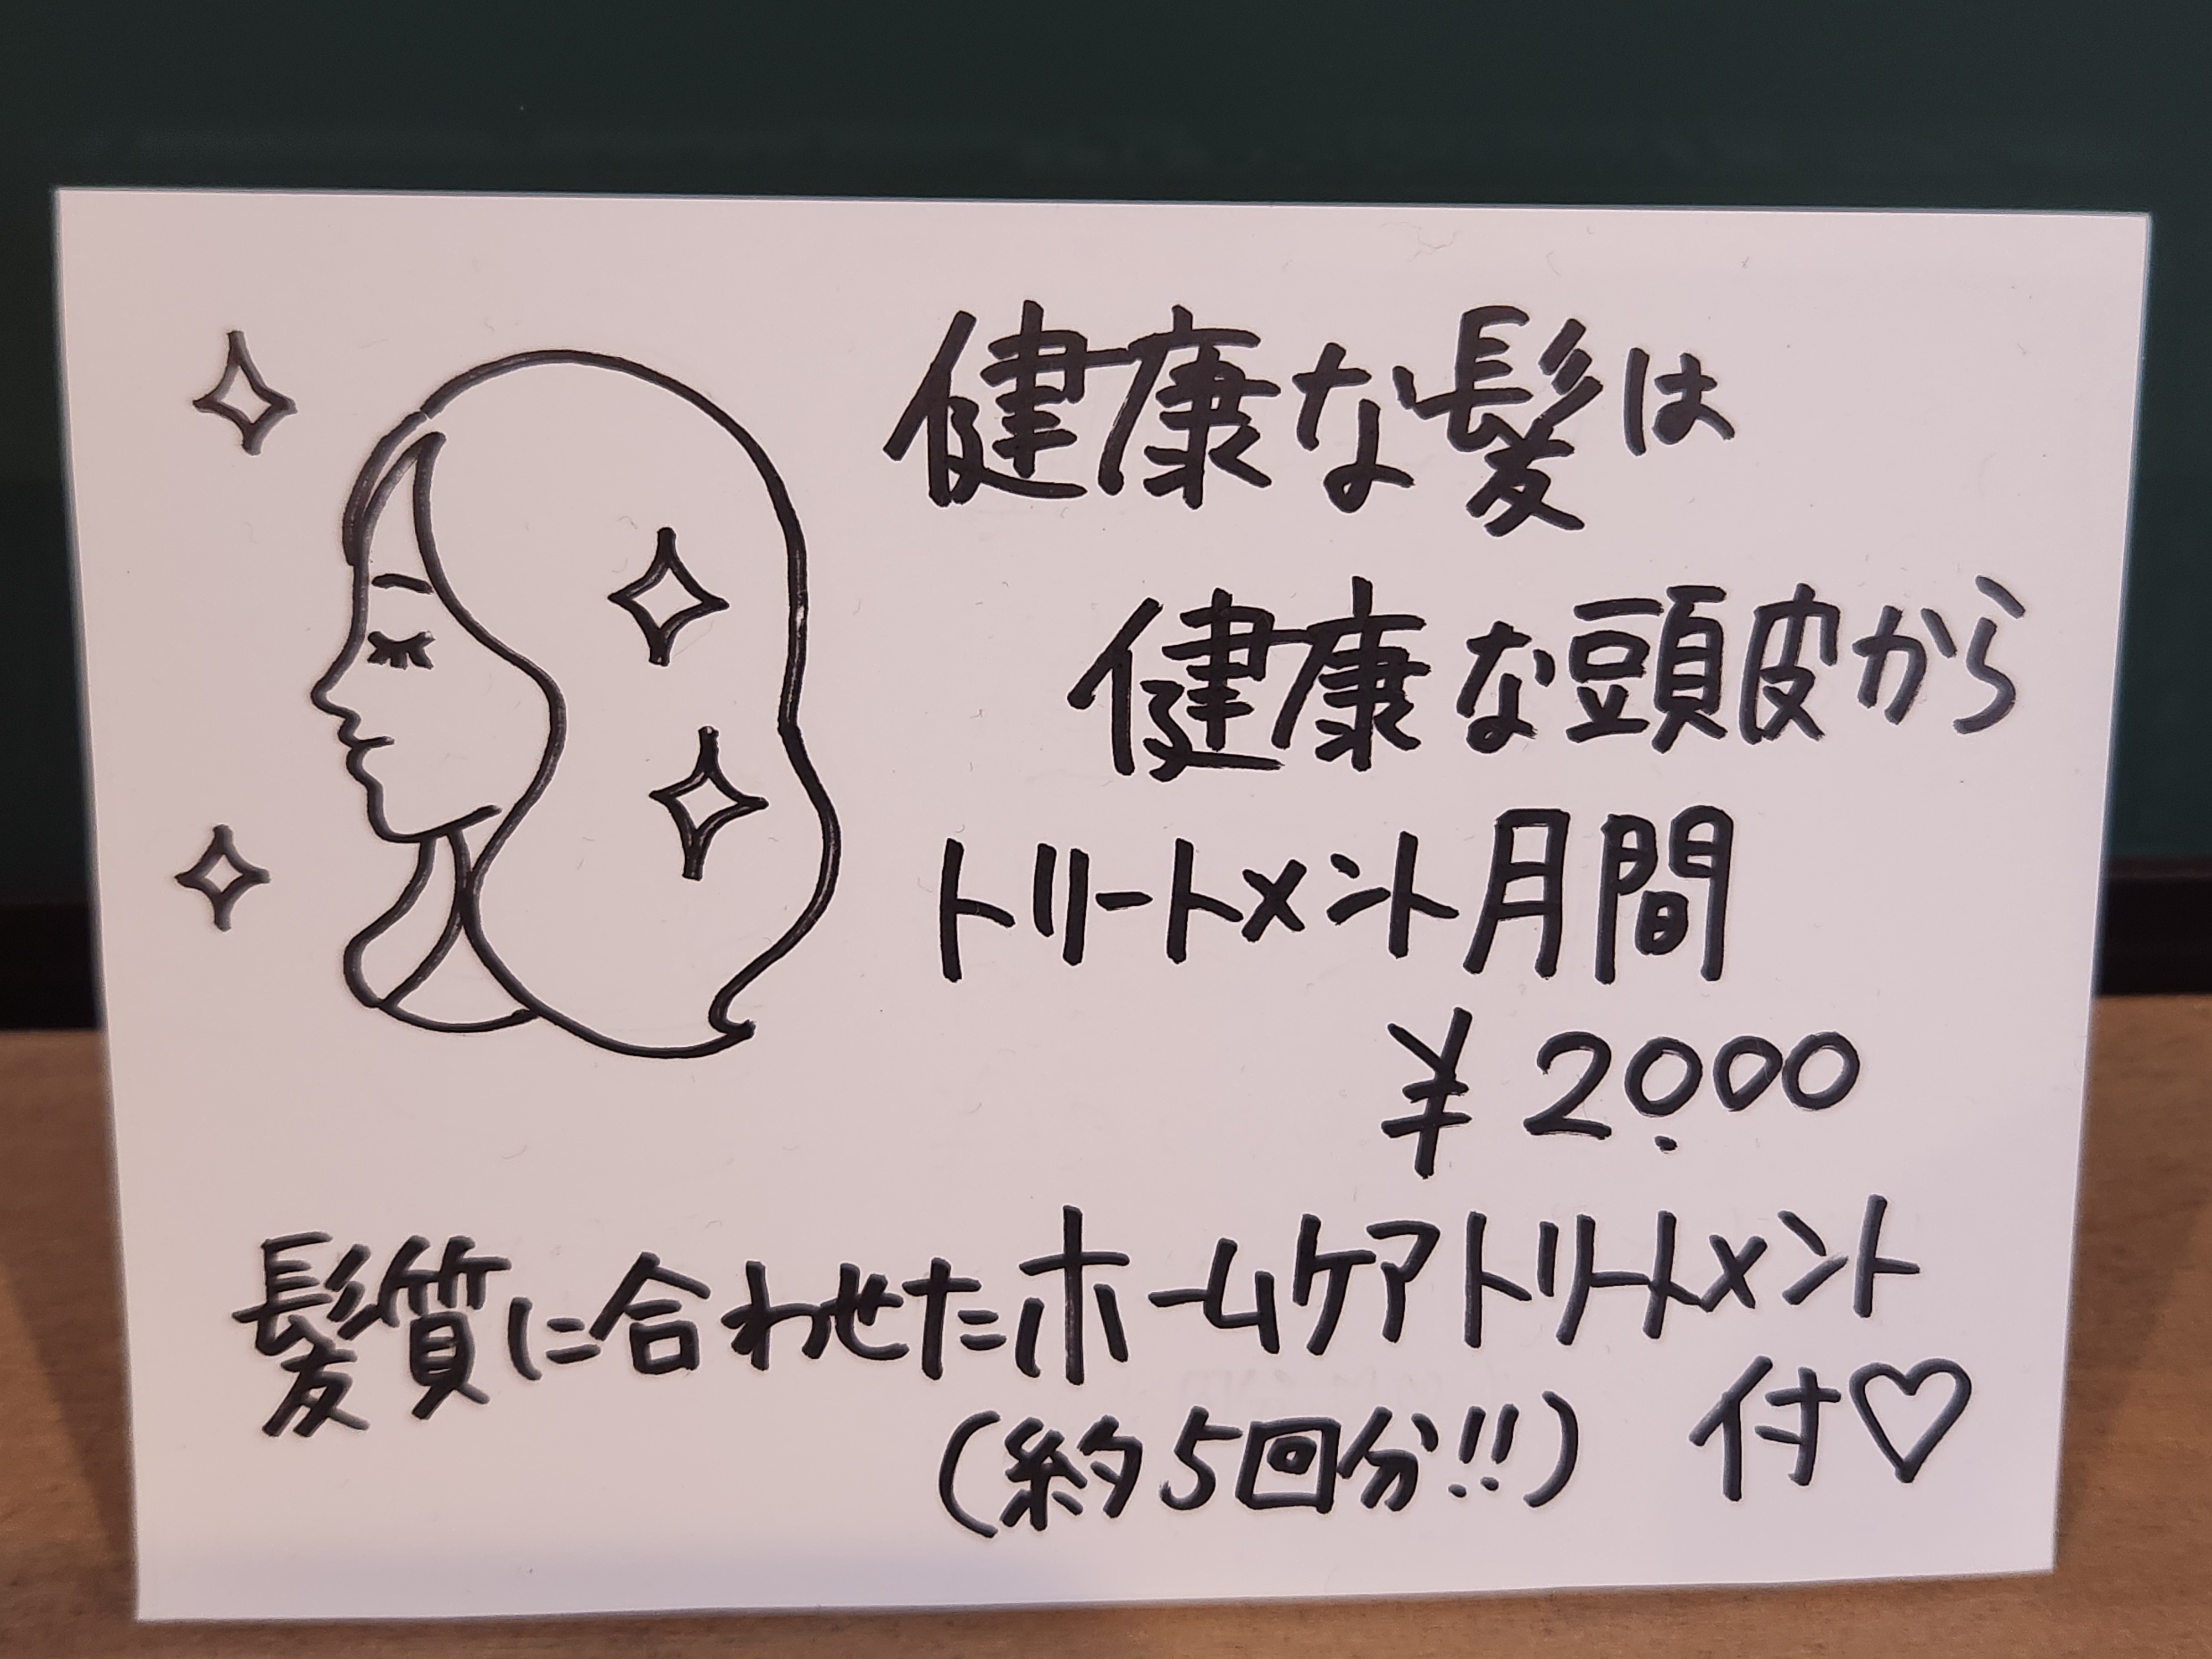 健康な髪は
健康な頭皮から
トリートメント月間
¥2000
髪質に合わせたホームケアトリートメント
付♡
(約5回分!!)